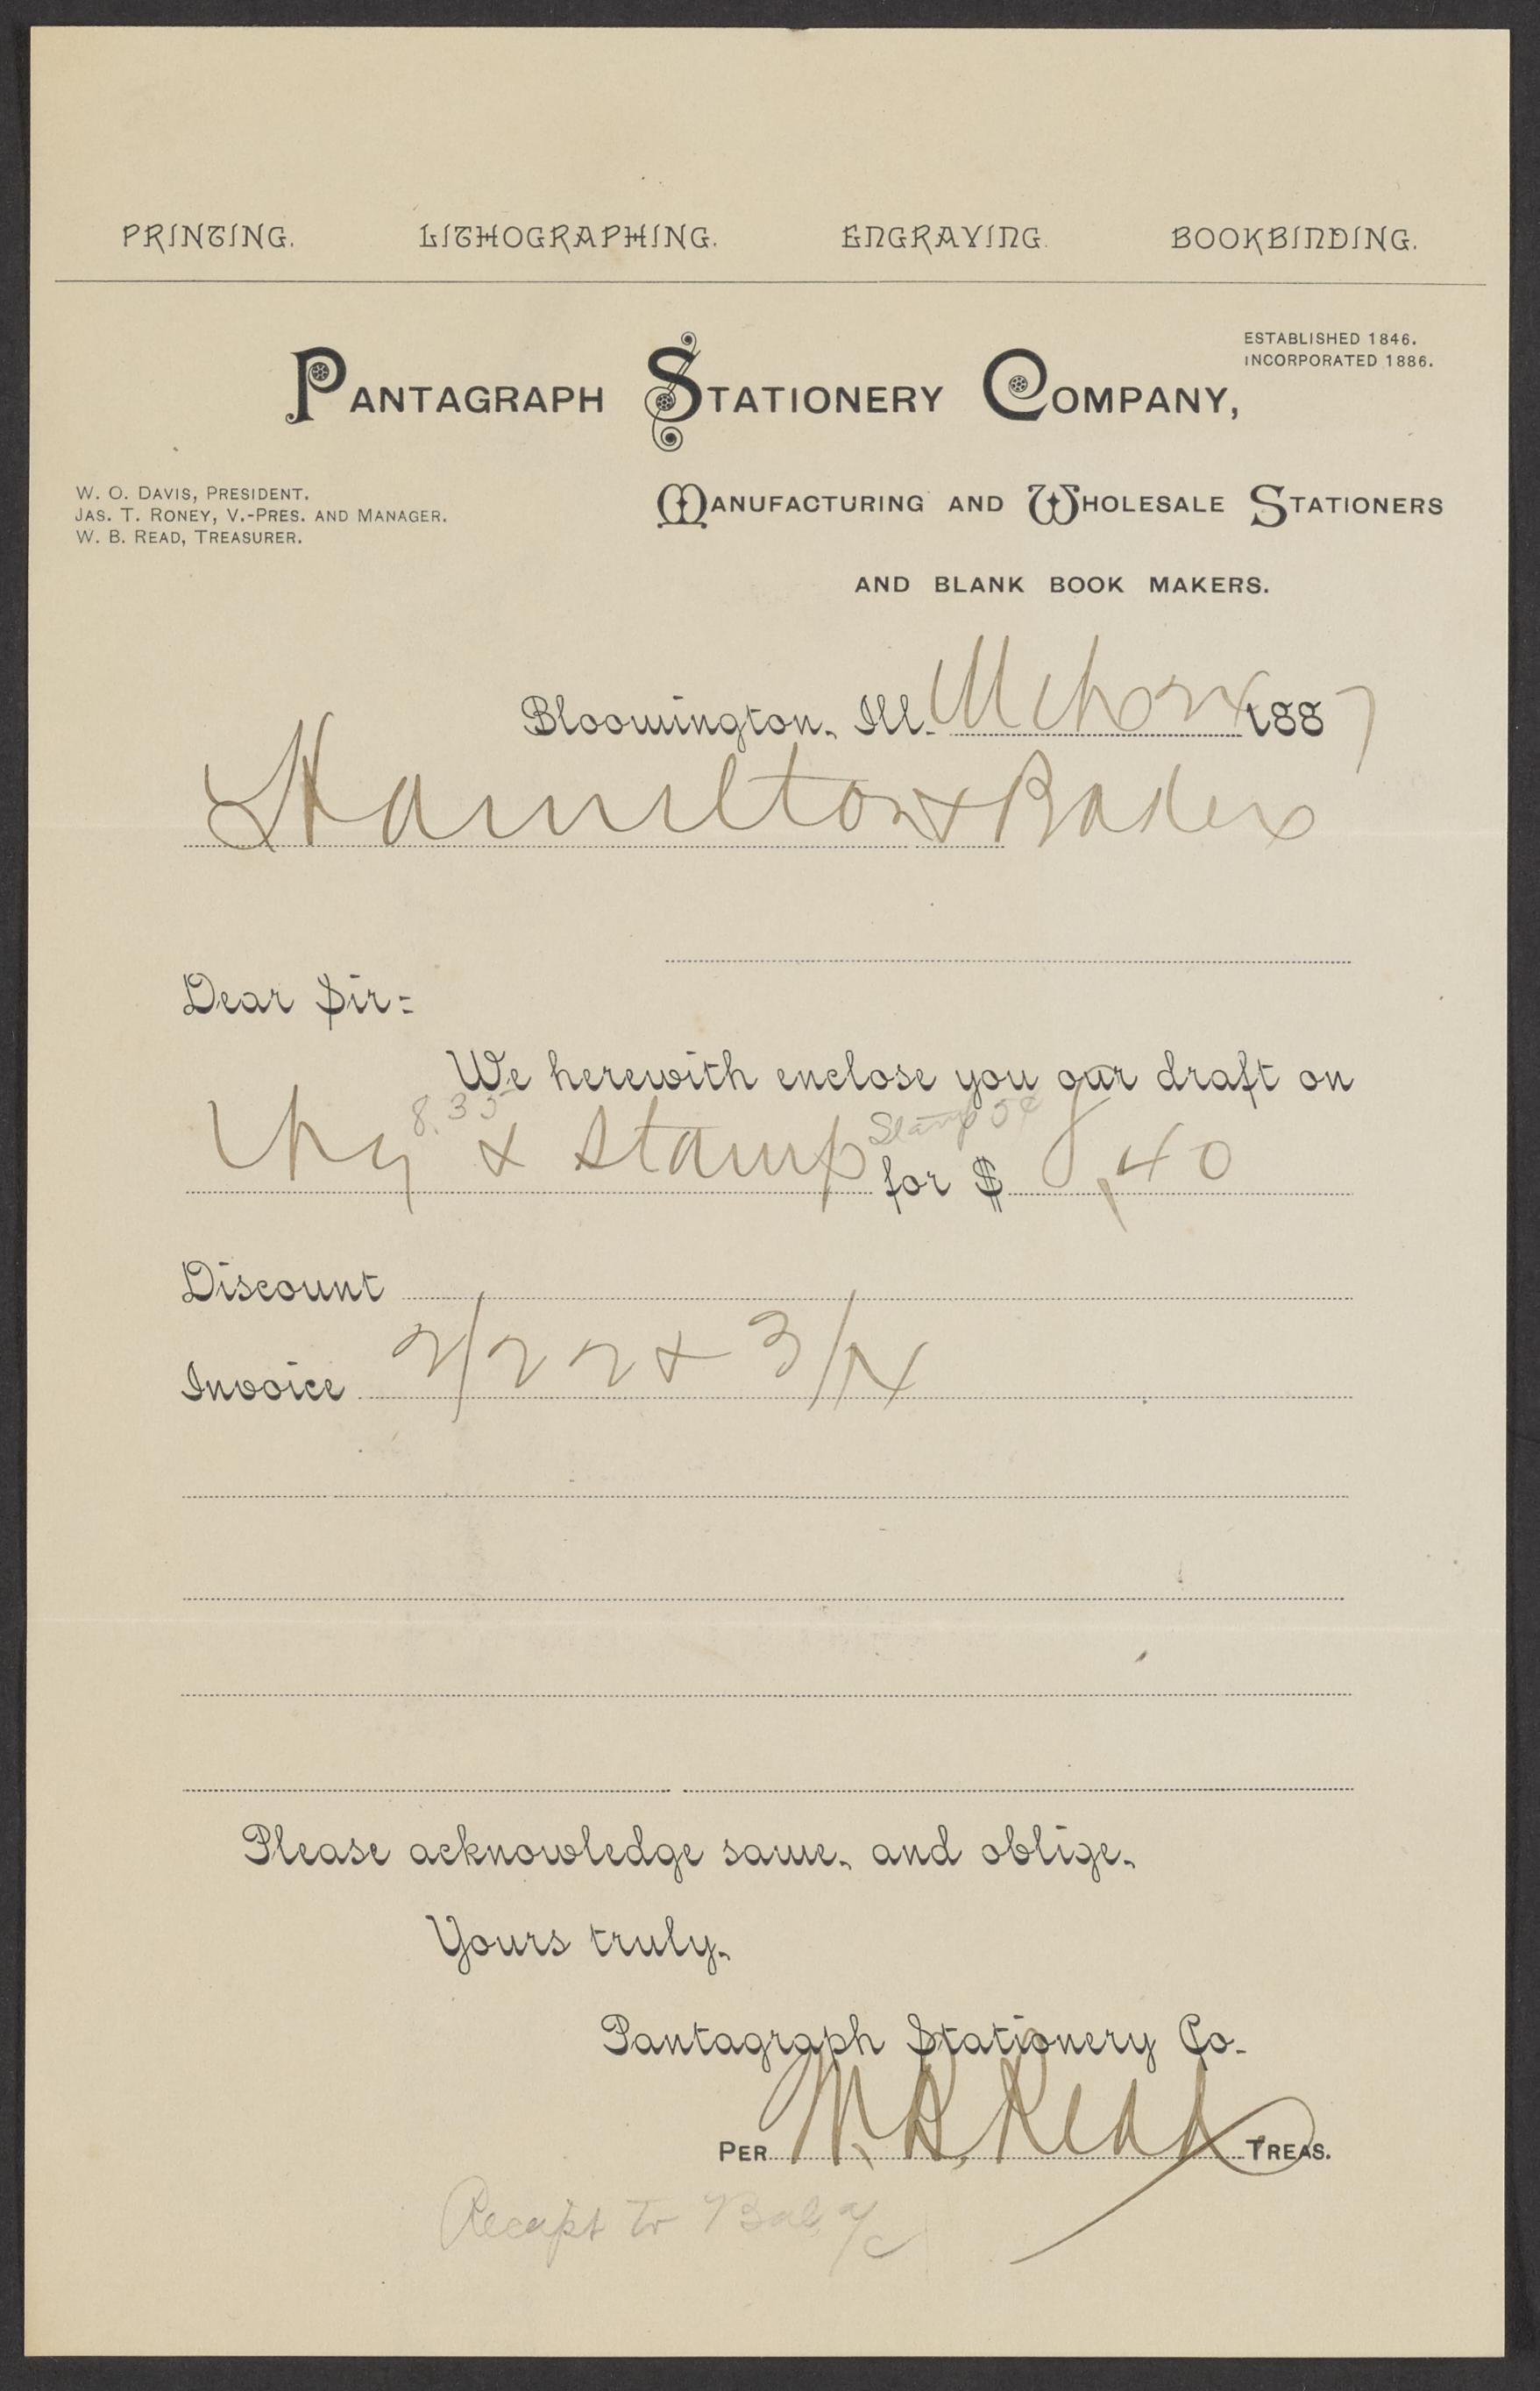 PRINTING. LITHOGRAPHING. ENGRAVING. BOOKBINDING.
ESTABLISHED 1846.
INCORPORATED 1886.
PANTAGRAPH STATIONERY COMPANY,
W. O. DAVIS, PRESIDENT.
JAS. T. RONEY, V.-PRES. AND MANAGER.
W. B. READ, TREASURER.
MANUFACTURING AND WHOLESALE STATIONERS
AND BLANK BOOK MAKERS.
Bloomington, Ill. Mch 1887
Hamilton & Bader
Dear Sir:
We herewith enclose you our draft on
8.35 Stamp 5¢
Chg & Stamp for $ 8.40
Discount
Invoice 2/22 & 3/14
Please acknowledge same, and oblige,
Yours truly,
Pantagraph Stationery Co.
PER W. B. Read TREAS.
Receipt to Bal a/c